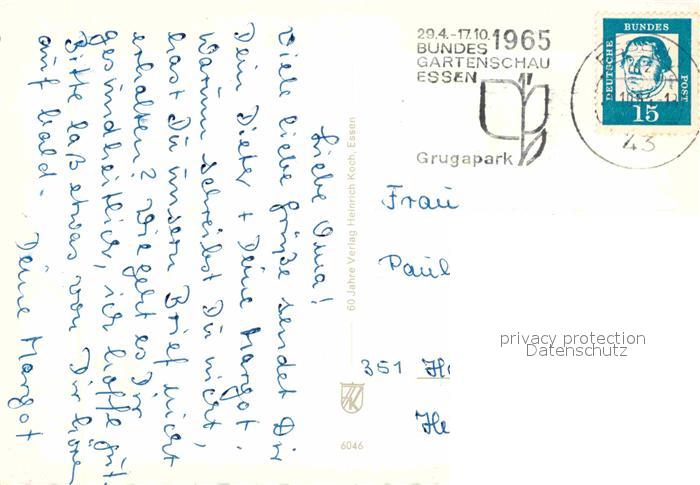 Liebe Oma!
Viele liebe Grüße sendet Dir
Dein Dieter + Deine Margot.
Warum schreibst Du nicht,
hast Du unsern Brief nicht
erhalten? Wie geht es Dir
gesundheitlich, ich hoffe gut.
Bitte laß etwas von Dir hören
auf bald. Deine Margot
60 Jahre Verlag Heinrich Koch, Essen
6046
29.4.-17.10. 1965
BUNDES
GARTENSCHAU
ESSEN
Grugapark
DEUTSCHE
BUNDES
POST
15
43
Frau
Paul
351 H
He
privacy protection
Datenschutz